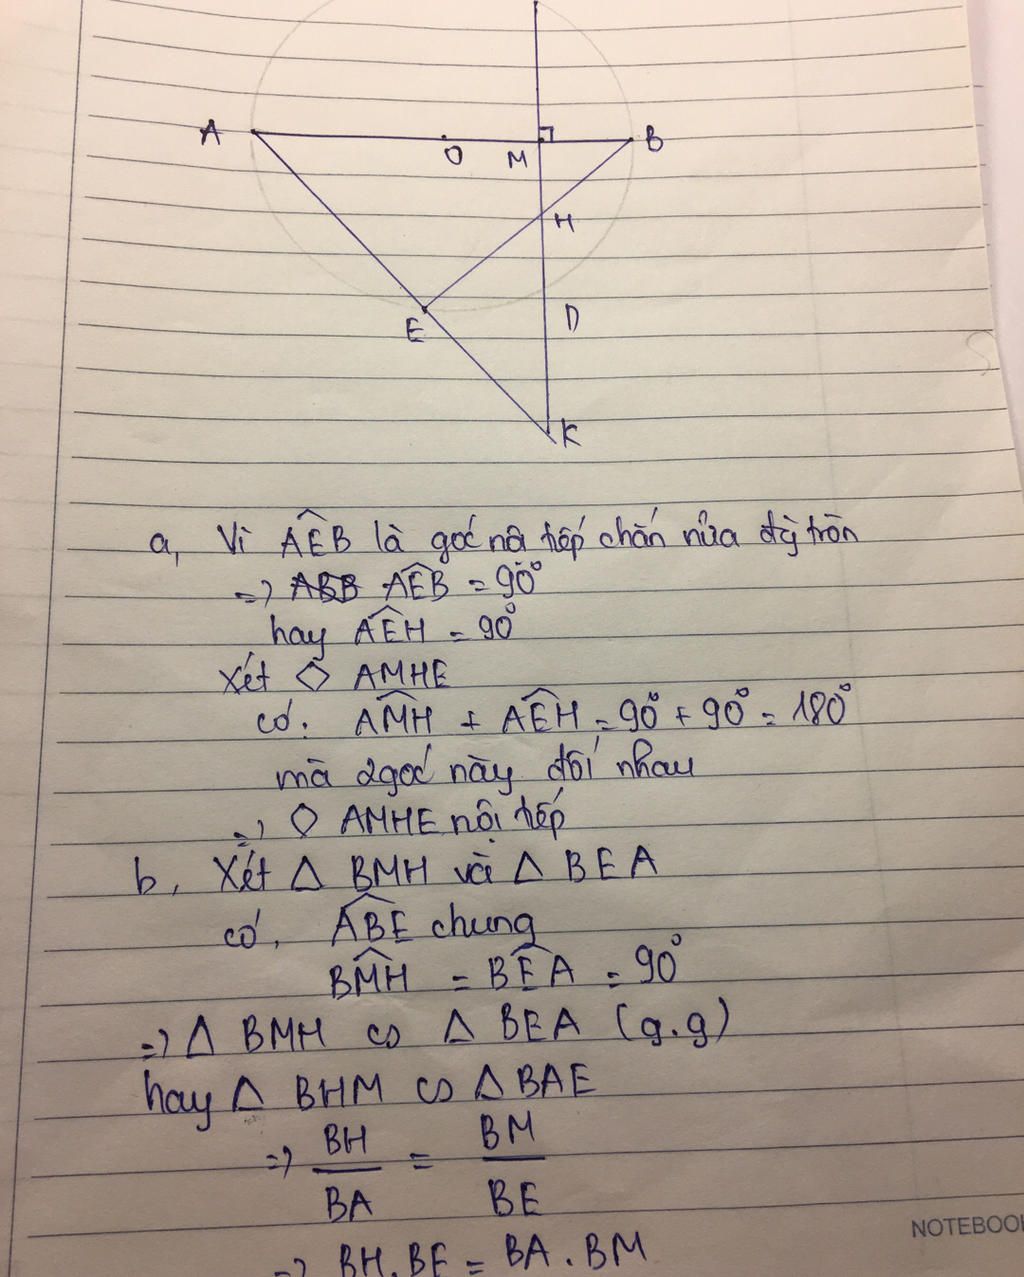 A
O
M
B
H
E
D
K
a, Vì AÊB là góc nội tiếp chắn nửa đg tròn
=> AÊB = 90°
hay AÊH = 90°
Xét ◇ AMHE
có: AM̂H + AÊH = 90° + 90° = 180°
mà 2 góc này đối nhau
=> ◇ AMHE nội tiếp
b, Xét △ BMH và △ BEA
có, AB̂E chung
BM̂H = BÊA = 90°
=> △ BMH ∽ △ BEA (g.g)
hay △ BHM ∽ △ BAE
=> BH/BA = BM/BE
=> BH.BE = BA.BM
NOTEBOOK